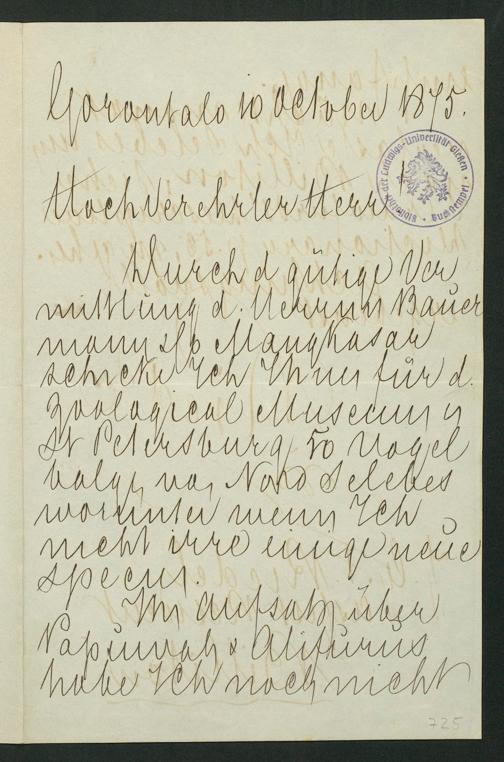 Gorontalo 10 October 1875.
Bibliothek der Ludwigs-Universität Gießen • Buchstempel •
Hochverehrter Herr
Durch d gütige Ver
mittlung d. Herrn Bauer
mann Mangkasar
schicke Ich Ihnen für d.
Zoological Museum
St Petersburg 50 Vogel
balge von Nord Selebes
worunter wenn Ich
nicht irre einige neue
species.
Ihr Aufsatz über
Papúwahs & Alifurus
habe Ich noch nicht
725